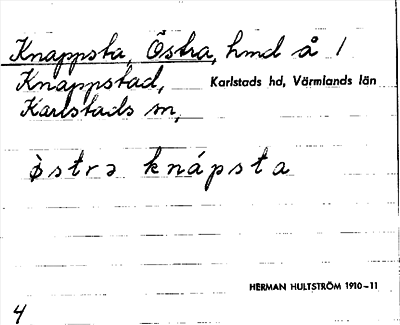 Knappsta, Östra, hmd å 1
Knappstad, Karlstads hd, Värmlands län
Karlstads sn,
östrə knápsta
HERMAN HULTSTRÖM 1910-11
4